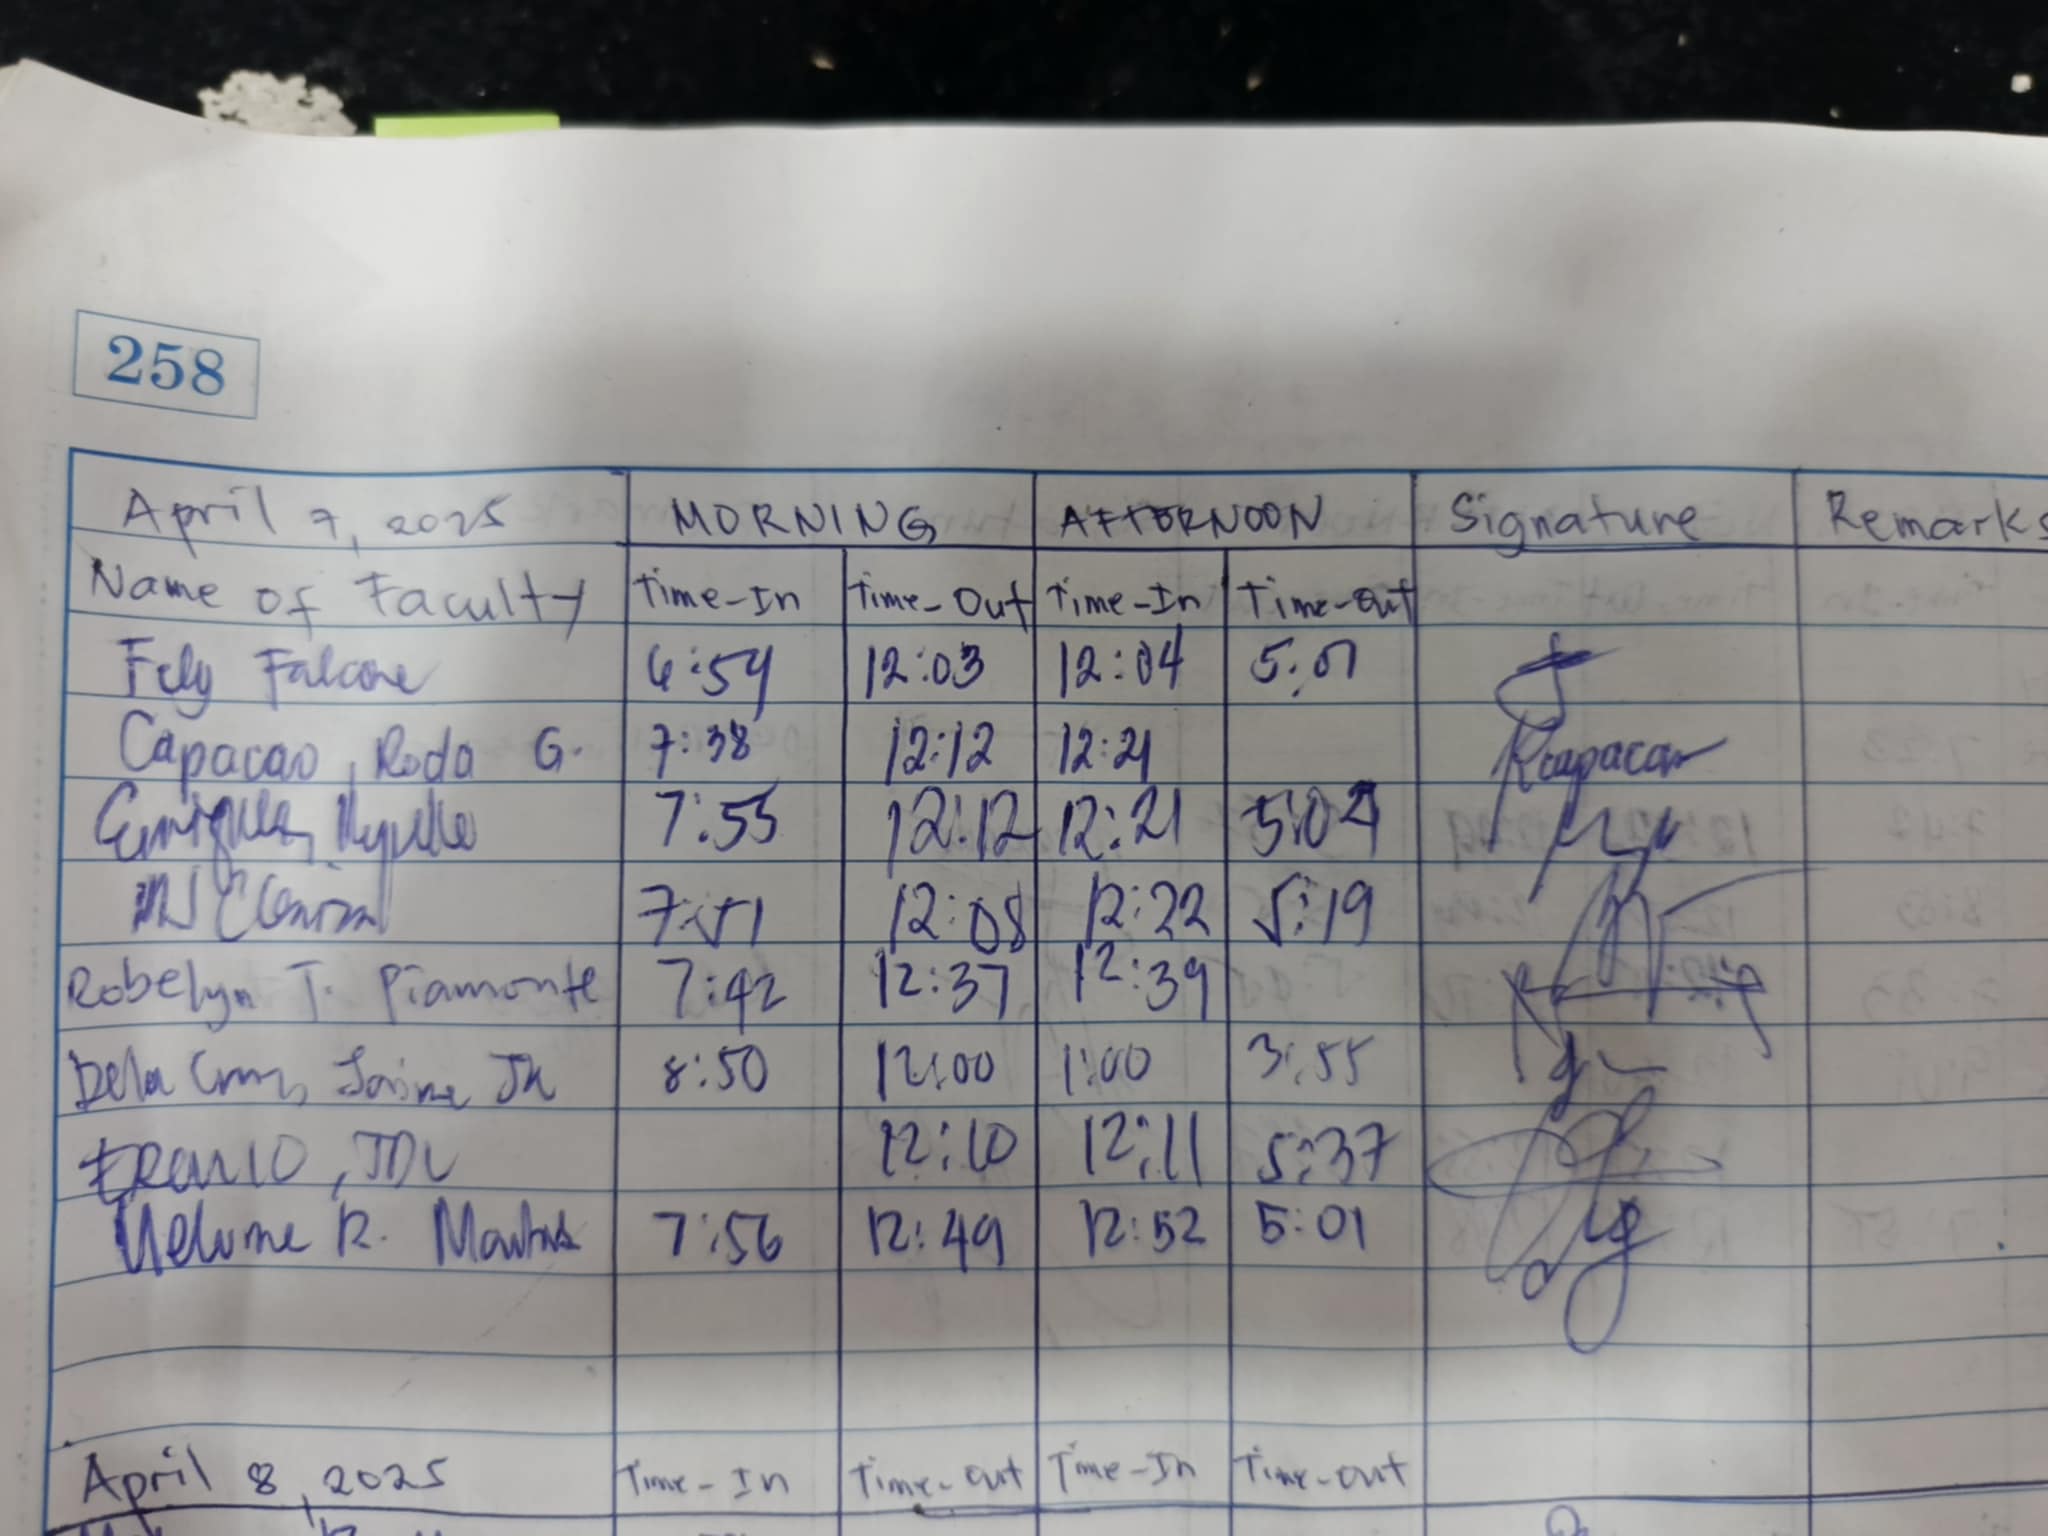 258
April 7, 2025 MORNING AFTERNOON Signature Remarks
Name of Faculty Time-In Time-Out Time-In Time-Out
Fely Falcone 6:54 12:03 12:04 5:01
Capacao, Roda G. 7:38 12:12 12:21 Rcapacao
7:55 12:12 12:21 5:04
7:51 12:08 12:22 5:19
Robelyn T. Piamonte 7:42 12:37 12:39
Dela Cruz, Jaime Jr 8:50 12:00 1:00 3:55
12:10 12:11 5:37
R. 7:56 12:49 12:52 5:01
April 8, 2025 Time-In Time-out Time-In Time-out